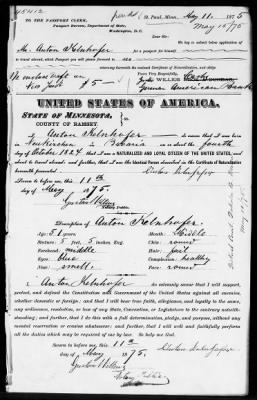 45412
St. Paul, Minn., May 11. 1875
To the PASSPORT CLERK,
Passport Bureau, Department of State,
Washington, D. C.
May 15/75
We beg to submit below application of
Mr. Anton Kelnhofer for a passport for himself
to travel abroad, which Passport you will please forward to us
Yours Very Respectfully,
$5
German American Bank
UNITED STATES OF AMERICA.
STATE OF MINNESOTA,
COUNTY OF RAMSEY.
I, Anton Kelnhofer do swear that I was born
in Bavaria on the fourth
day of October 1824 that I am a NATURALIZED AND LOYAL CITIZEN OF THE UNITED STATES, and
about to travel abroad; and further, that I am the Identical Person described in the Certificate of Naturalization
herewith presented.
Sworn to before me this 11th
day of May 1875.
Gustav Willius
Description of Anton Kelnhofer
Age: 51 years
Mouth: Middle
Stature: 5 feet, 5 inches Eng.
Chin: round
Forehead: middle
Hair: fair
Eyes: blue
Complexion: healthy
Nose: small
Face: round
I, Anton Kelnhofer do solemnly swear that I will support,
protect, and defend the Constitution and Government of the United States against all enemies,
whether domestic or foreign; and that I will bear true faith, allegiance, and loyalty to the same,
any ordinance, resolution, or law of any State, Convention, or Legislature to the contrary notwith-
standing; and further, that I do this with a full determination, pledge, and purpose, without any
mental reservation or evasion whatsoever; and further, that I will well and faithfully perform
all the duties which may be required of me by law. So help me God.
Sworn to before me, this 11th
day of May 1875.
Gustav Willius
Notary Public